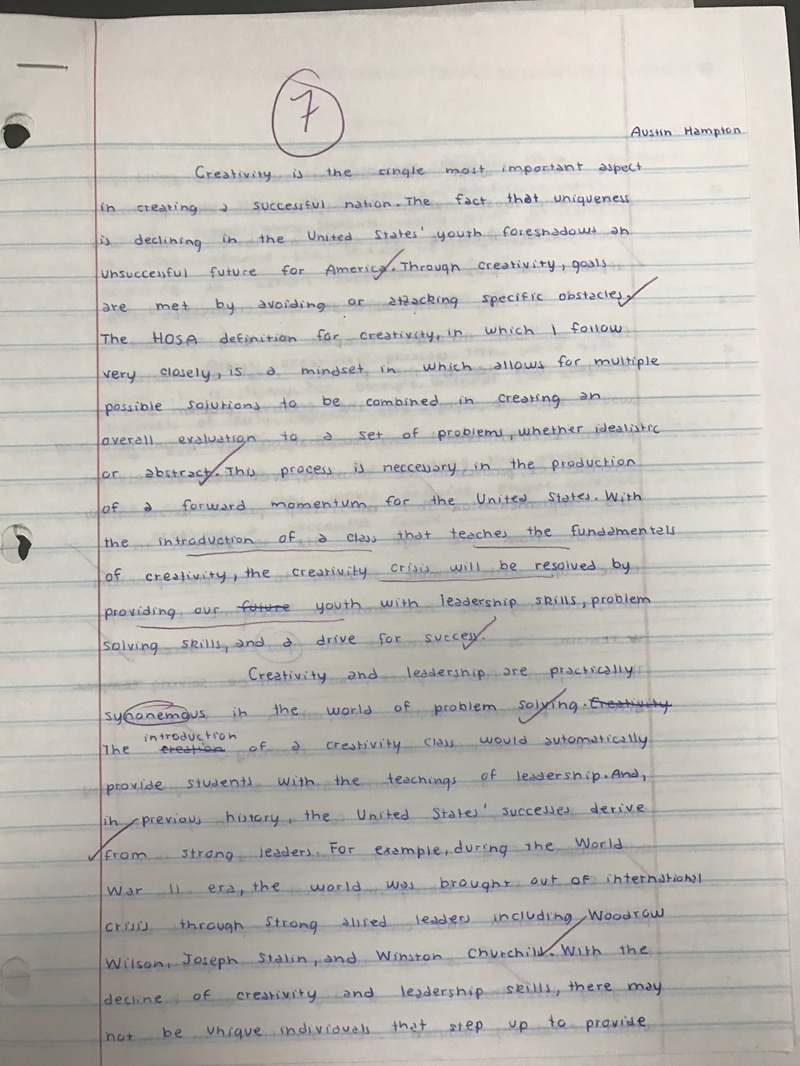 7
Austin Hampton
Creativity is the single most important aspect
in creating a successful nation. The fact that uniqueness
is declining in the United States' youth foreshadows an
unsuccessful future for America. Through creativity, goals
are met by avoiding or attacking specific obstacles.
The HOSA definition for creativity, in which I follow
very closely, is a mindset in which allows for multiple
possible solutions to be combined in creating an
overall evaluation to a set of problems, whether idealistic
or abstract. This process is neccessary in the production
of a forward momentum for the United States. With
the introduction of a class that teaches the fundamentals
of creativity, the creativity crisis will be resolved by
providing our future youth with leadership skills, problem
solving skills, and a drive for success.
Creativity and leadership are practically
synonemous in the world of problem solving. Creativity
introduction
The creation of a creativity class would automatically
provide students with the teachings of leadership. And,
in previous history, the United States' successes derive
from strong leaders. For example, during the World
War II era, the world was brought out of international
crisis through strong alired leaders including Woodrow
Wilson, Joseph Stalin, and Winston Churchill. With the
decline of creativity and leadership skills, there may
not be unique individuels that step up to provide